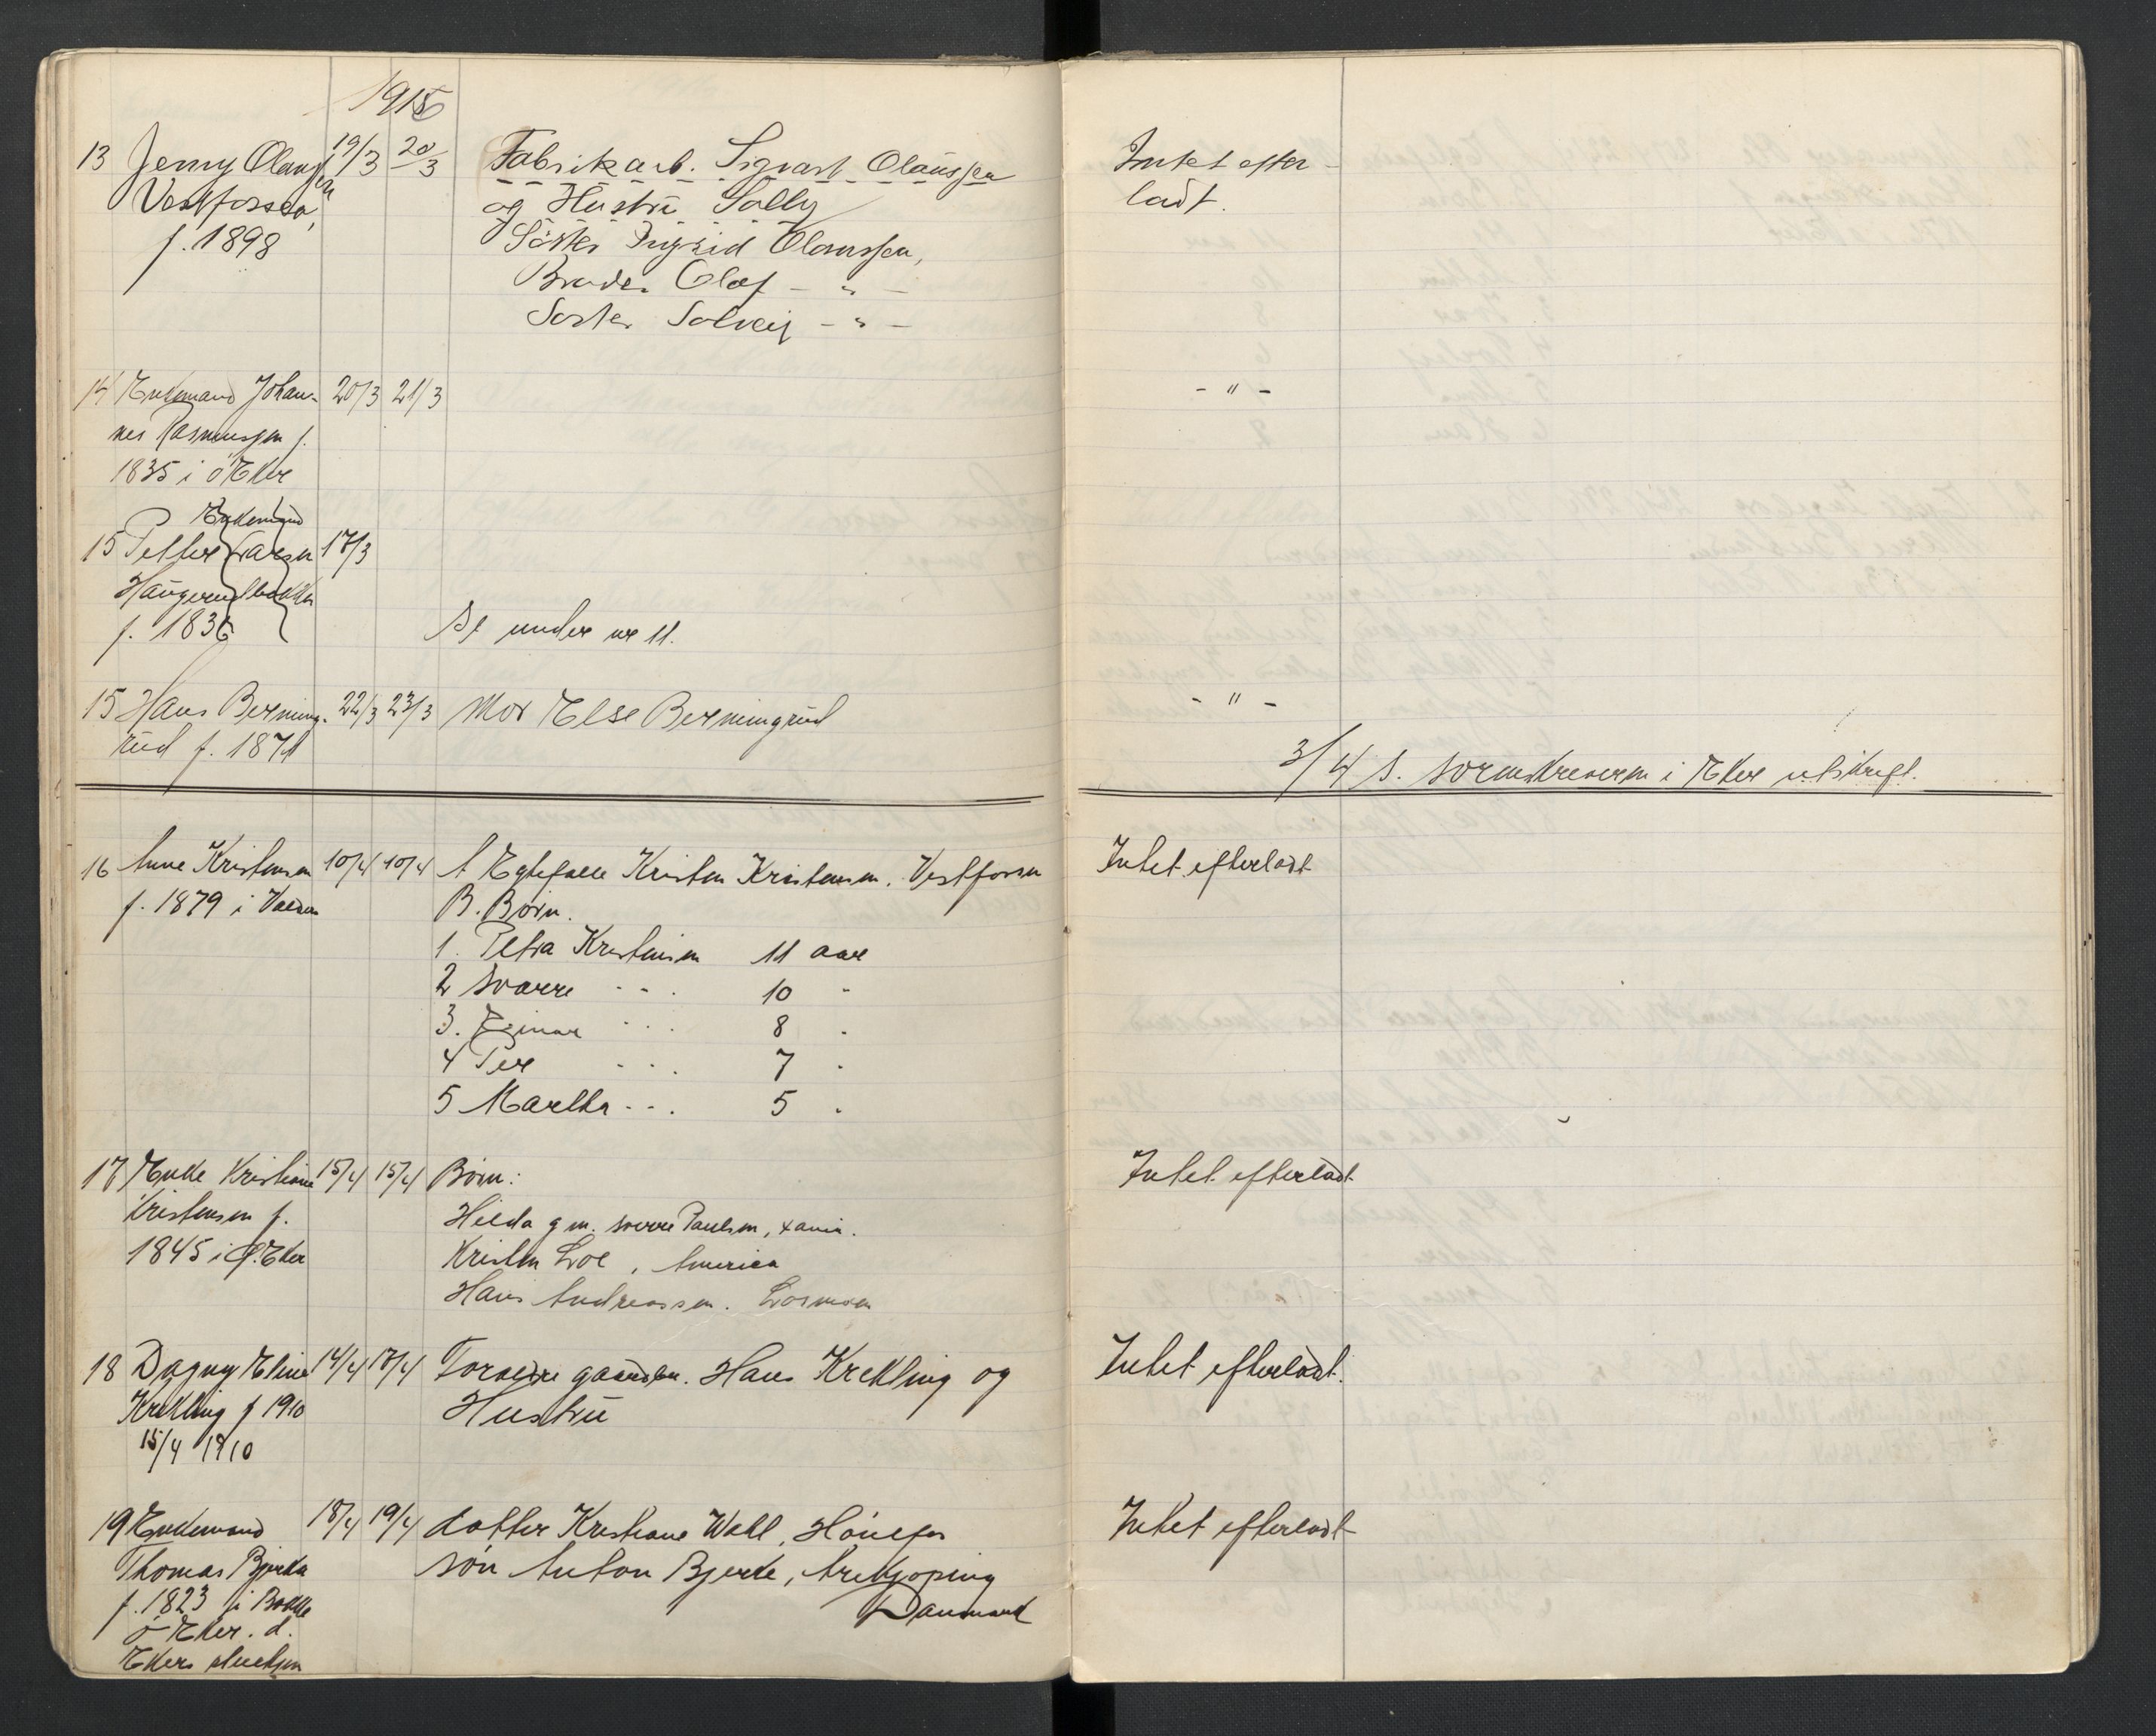 1915
13 Jenny Olaussen 19/3 20/3 Fabrikarb. Sigvart Olaussen Intet efter-
Vestfossen, og Hustru Sally ladt.
f. 1898 Söster Ingrid Olaussen,
Broder Olaf - " -
Söster Solveig - " -
14 Enkemand Johan- 20/3 21/3 - " -
nes Rasmussen f.
1835 i Ø Eker
Enkemand
15 Petter Larsen 17/3
Haugerudbakken
f. 1836 Se under nr 11.
15 Hans Berming- 22/3 23/3 Mor Else Bermingrud - " -
rud f. 1871
3/4 s. sorenskriveren i Eker utskrift.
16 Anne Kristensen 10/4 10/4 A Egtefælle Kristen Kristensen. Vestfossen Intet efterladt
f. 1879 i B. Börn.
1. Petra Kristensen 11 aar
2 Svarre - - . 10 "
3. Einar - - . 8 "
4 Per - - . 7 "
5 Martha - - . 5 "
17 Enke Kristiane 15/4 15/4 Börn: Intet efterladt
Kristensen f. Hilda g m. Sverre Paulsen, xania.
1845 i Ø. Eker Kristen Loe, America
Hans Andreassen.
18 Dagny Eline 14/4 17/4 Forædre gaardbr. Hans Krekling og Intet efterladt.
Krekling f 1910 Hustru
15/4 1910
19 Enkemand 18/4 19/4 datter Kristiane Wahl, Hönefos Intet efterladt
Thomas Bjerke sön Anton Bjerke,
f. 1823 i Danmark
ö Eker. d.
Ekers